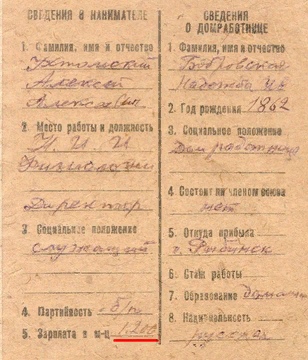 СВЕДЕНИЯ О НАНИМАТЕЛЕ
1. Фамилия, имя и отчество
Ухтомский
Алексей
Алексеевич
2. Место работы и должность
Физиологии
Директор
3. Социальное положение
служащий
4. Партийность б/п
5. Зарплата в м-ц 1200
СВЕДЕНИЯ
О ДОМРАБОТНИЦЕ
1. Фамилия, имя и отчество
Бобровская
Надежда Ив
2. Год рождения 1862
3. Социальное положение
Дом работница
4. Состоит ли членом союза
нет
5. Откуда прибыла
г. Рыбинск
6. Стаж работы
7. Образование домашн
8. Национальность
русская